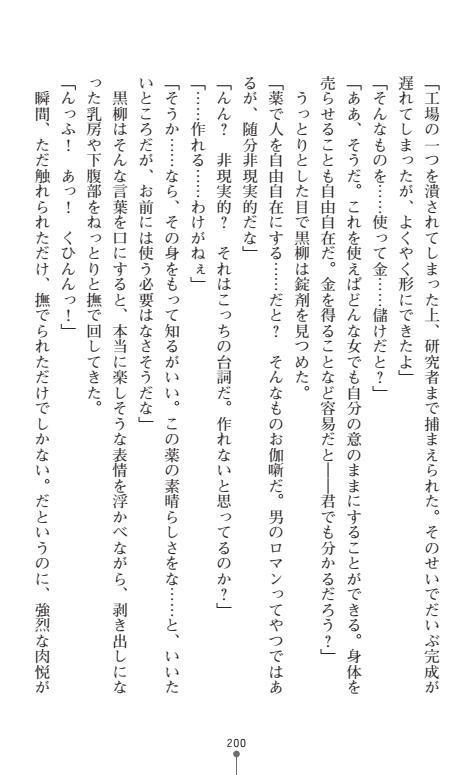 「工場の一つを潰されてしまった上、研究者まで捕まえられた。そのせいでだいぶ完成が
遅れてしまったが、よくやく形にできたよ」
「そんなものを……使って金……儲けだと？」
「ああ、そうだ。これを使えばどんな女でも自分の意のままにすることができる。身体を
売らせることも自由自在だ。金を得ることなど容易だと――君でも分かるだろう？」
　うっとりとした目で黒柳は錠剤を見つめた。
「薬で人を自由自在にする……だと？　そんなものお伽噺だ。男のロマンってやつではあ
るが、随分非現実的だな」
「んん？　非現実的？　それはこっちの台詞だ。作れないと思ってるのか？」
「……作れる……わけがねぇ」
「そうか……なら、その身をもって知るがいい。この薬の素晴らしさをな……と、いいた
いところだが、お前には使う必要はなさそうだな」
　黒柳はそんな言葉を口にすると、本当に楽しそうな表情を浮かべながら、剥き出しにな
った乳房や下腹部をねっとりと撫で回してきた。
「んっふ！　あっ！　くひんんっ！」
　瞬間、ただ触れられただけ、撫でられただけでしかない。だというのに、強烈な肉悦が
200